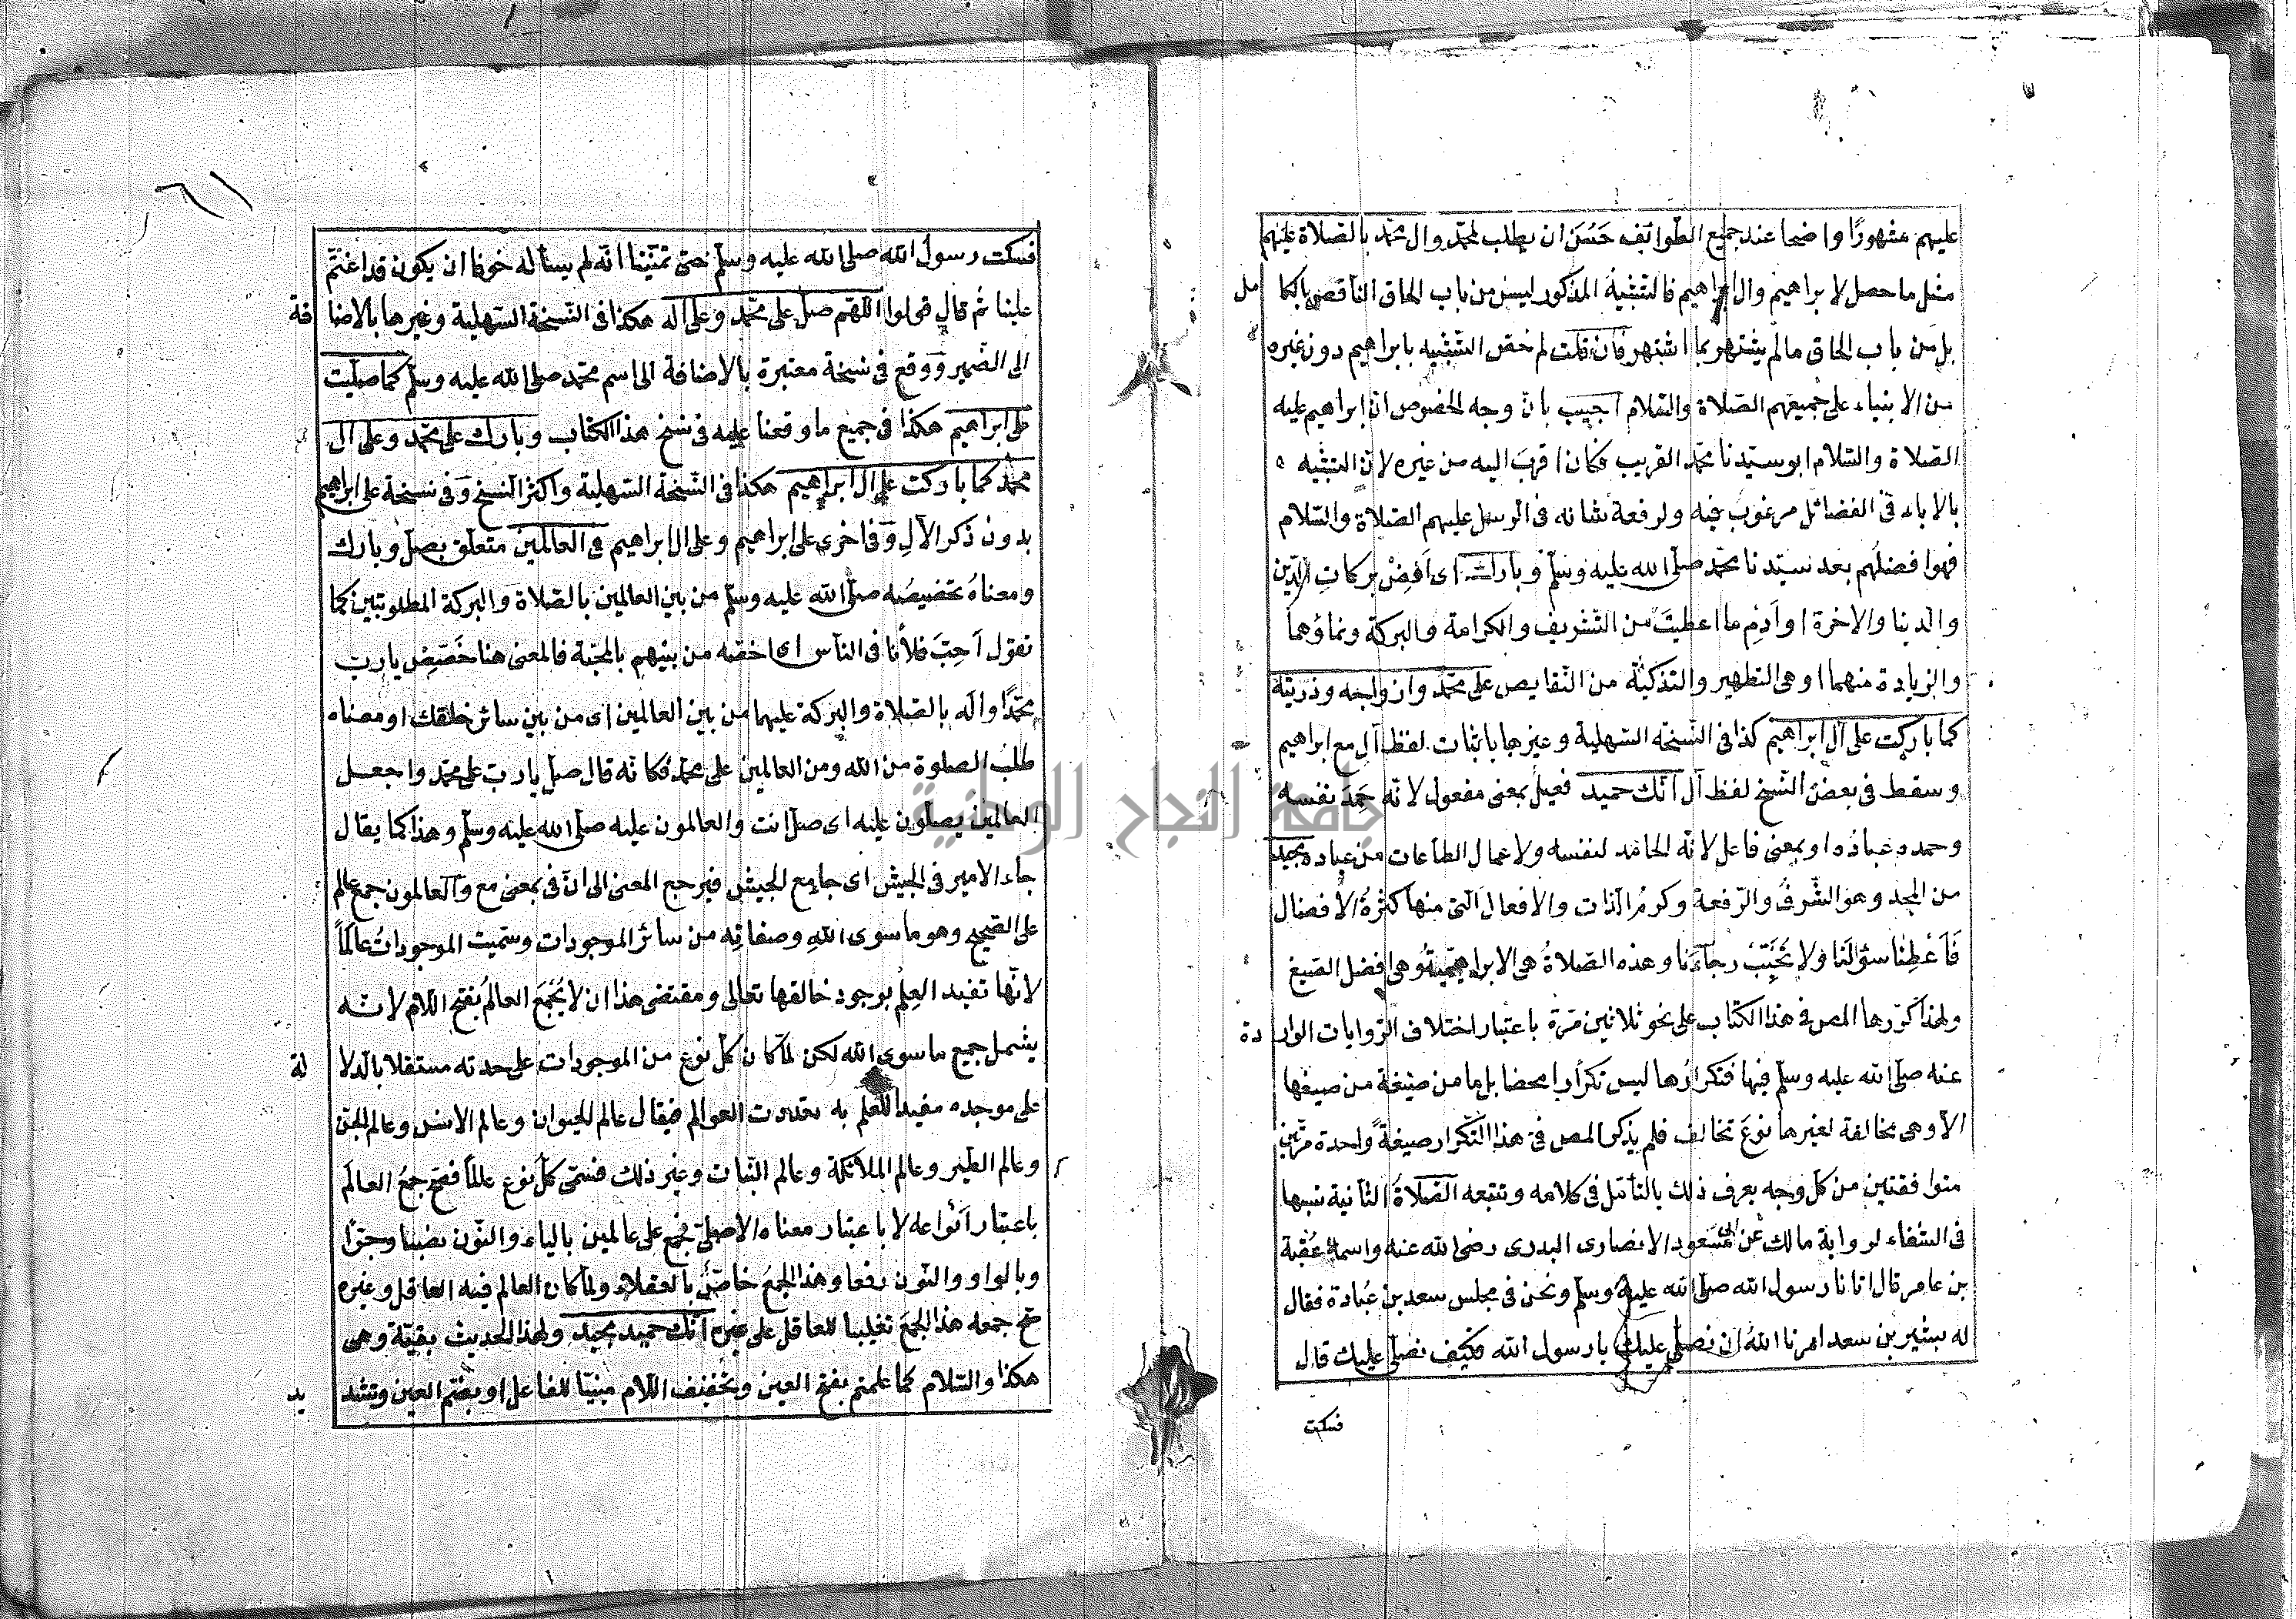 عليهم مشهورًا واضحا عند جميع الطوائف حَسُنَ ان يطلب لمحمّد وال محمّد بالصّلاة عليهم
مثل ما حصل لابراهيم وال ابراهيم فالتشبيهُ المذكور ليس من باب الحاق النّاقص بالكا مل
بل من باب الحاق ما لم يشتهر بما اشتهر فان قلت لم خصّ التشبيه بابراهيم دون غيره
من الانبياء على جميعهم الصّلاة والسّلام اجيب بانّ وجه الخصوص انّ ابراهيم عليه
الصّلاة والسّلام ابو سيّدنا محمّد القريب فكان اقربَ اليه من غيره لانّ التشبّه
بالاباء فى الفضائل مرغوب فيه ولرفعة شانه فى الرّسل عليهم الصّلاة والسّلام
فهو افضلُهم بعد سيّدنا محمّد صلّى الله عليه وسلّم وبارك اى اَفِضْ بركاتِ الدّين
والدنيا والاخرة او اَدِم ما اعطيتَ من التّشريف والكرامة والبركة ونماؤهما
والزيادة منهما او هى التطهير والتذكية من النّقايص على محمّد وازواجه وذريّته
كما باركت على آل ابراهيم كذا فى النّسخة السّهلية وغيرها باثبات لفظ آل مع ابراهيم
وسقط فى بعض النّسخ لفظ آل انّك حميد فعيل بمعنى مفعول لانّه حَمِدَ نفسه
وحمده عباده او بمعنى فاعل لانّه الحامد لنفسه ولاعمال الطاعات من عباده مجيد
من المجد وهو الشّرفُ والرّفعة وكرمُ الذّات والافعال الّتى منها كثرةُ الافضال
فَاَعْطِنَا سُؤالَنَا ولا تُخَيِّبْ رجاءَنا وهذه الصّلاةُ هى الابراهيميّةُ وهى افضل الصّيغ
ولهذا كرّرها المص فى هذا الكتاب على نحو ثلاثين مرّة باعتبار اختلاف الرّوايات الوار دة
عنه صلّى الله عليه وسلّم فيها فتكرارُها ليس تكرارا محضا بل ما من صيغة من صيغها
الاّ وهى مخالفة لغيرها نوعَ تخالف فلم يذكر المص فى هذا التّكرار صيغةً واحدة مرّتين
متوافقتين من كلّ وجه يعرف ذلك بالتأمّل فى كلامه وتتبعه الصّلاةُ الثّانية نسبها
فى الشفاء لرواية مالك عن ابى مسعود الانصارى البدرى رضى الله عنه واسمه عُقبة
بن عامر قال اتانا رسول الله صلّى الله عليه وسلّم ونحن فى مجلس سعد بن عُبادة فقال
له بشير بن سعد امرنا اللهُ ان نصلّى عليك يا رسول الله فكيف نصلّى عليك قال
فسكت
فسكت رسول الله صلى الله عليه وسلّم حتى تمنّينا انّه لم يسأله خوفا ان يكون قد اغتمّ
علينا ثم قال قولوا اللّهم صلّ على محمّد وعلى اله هكذا فى النّسخة السّهلية وغيرها بالاضا فة
الى الضّمير ووقع فى نسخة معتبرة بالاضافة الى اسم محمّد صلى الله عليه وسلّم كما صلّيت
على ابراهيم هكذا فى جميع ما وقعنا عليه فى نسخ هذا الكتاب وبارك على محمّد وعلى ال
محمّد كما باركت على ال ابراهيم هكذا فى النّسخة السّهلية واكثر النّسخ وفى نسخة على ابراهيم
بدون ذكر الآلِ وفى اخرى على ابراهيم وعلى ال ابراهيم فى العالمين متعلّق بصلّ وبارك
ومعناهُ تخصيصُه صلّى الله عليه وسلّم من بين العالمين بالصّلاة والبركة المطلوبتين كما
تقول اَحِبّ فلاُنا فى النّاس اى اخصّه من بينهم بالمحبّة فالمعنى هنا خَصّصْ يا ربّ
محمّدًا واله بالصّلاة والبركة عليهما من بين العالمين اى من بين سائر خلقك او معناه
طلبُ الصلوة من الله ومن العالمين على محمّد فكانّه قال صلّ يا ربّ على محمّد واجعل
العالمين يصلّون عليه اى صلّ انت والعالمون عليه صلّى الله عليه وسلّم وهذا كما يقال
جاء الامير فى الجيش اى جا مع الجيش فيرجع المعنى الى انّ فى بمعنى مع والعالمون جمع عالم
على الصّحيح وهو ما سوى اللهِ وصفاتِه من سائر الموجودات وسمّيت الموجوداتُ عالَمًا
لانّها تفيد العِلمَ بوجود خالقها تعالى ومقتضى هذا ان لا يُجمَعَ العالَمُ بفتح اللّام لانّه
يشمل جميع ما سوى الله لكن لمّا كان كلّ نوع من الموجودات على حدته مستقلا بالدلا لة
على موجده مفيدا للعلم به تعدّدت العوالم فيقال عالم الحيوان وعالم الانس وعالم الجنّ
وعالم الطّير وعالم الملائكة وعالم النّبات وغير ذلك فسمّى كلّ نوع عالمًا فصحّ جمعُ العالَم
باعتبار اَنْواعه لا باعتبار معناه الاصلىّ فجُمع على عالمين بالياء والنّون نصبا وجرًّا
وبالواو والنّون رفعا وهذا الجمعُ خاصّ بالعقلاء ولمّا كان العالم فيه العاقل وغيره
صحّ جمعه هذا الجمعَ تغليبا للعاقل على غيره انّك حميد مجيد ولهذا الحديث بقيّة وهى
هكذا والسّلام كما علمتم بفتح العين وتخفيف اللّام مبنيّا للفاعل او بضمّ العين وتشد يد
جامعة النجاح الوطنية